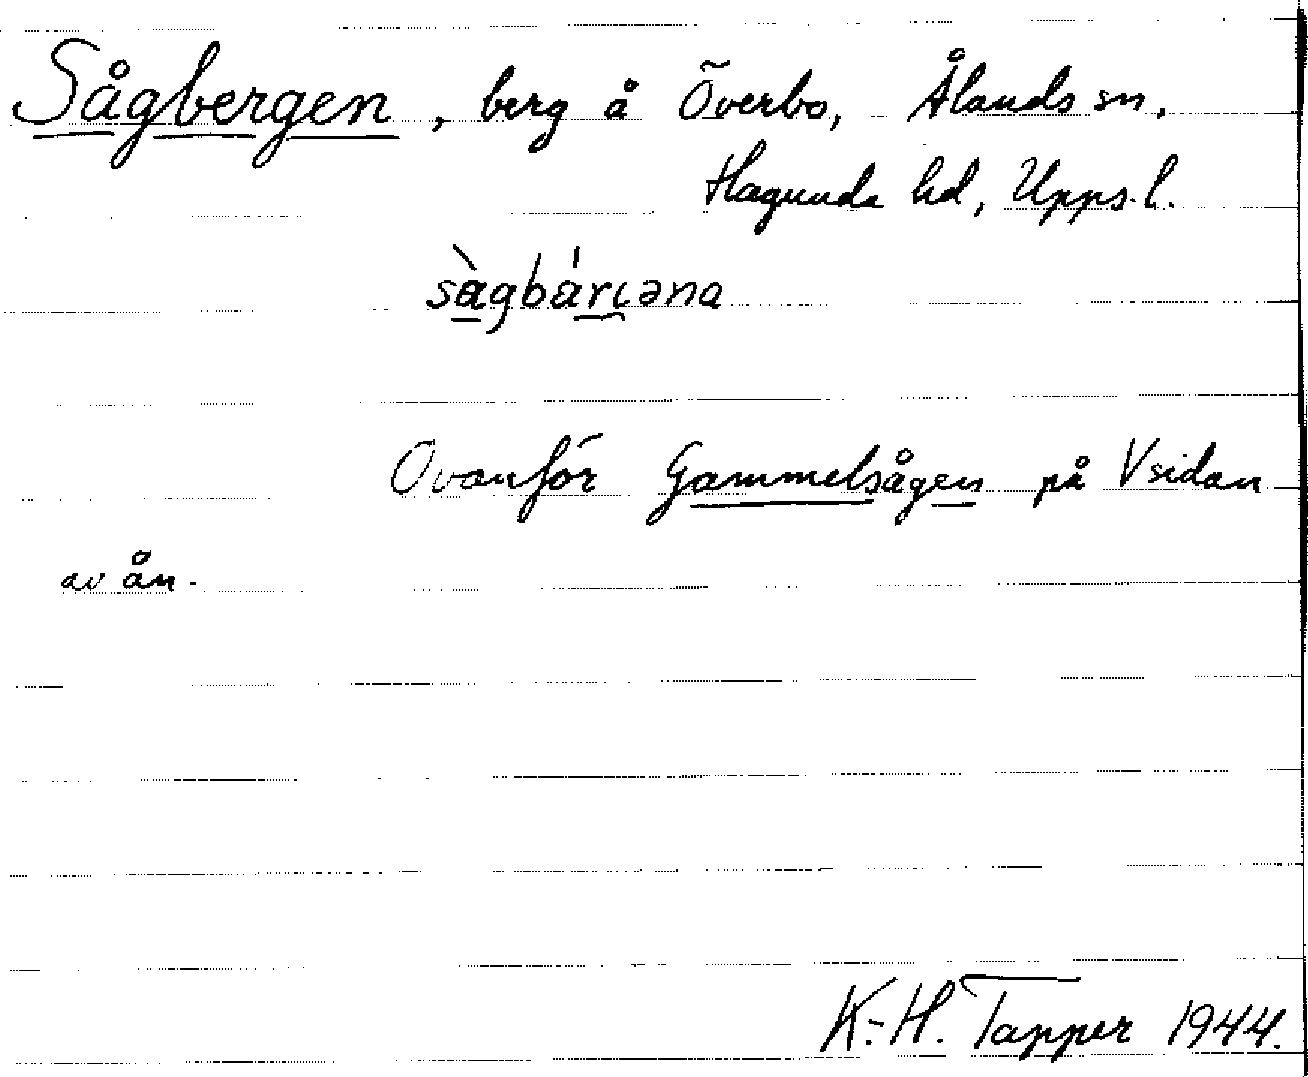 Sågbergen, berg å Överbo, Ålands sn,
Hagunda hd, Upps. l.
sàgbárɩəna
Ovanför Gammelsågen på V sidan
av ån.
K.-H. Tapper 1944.